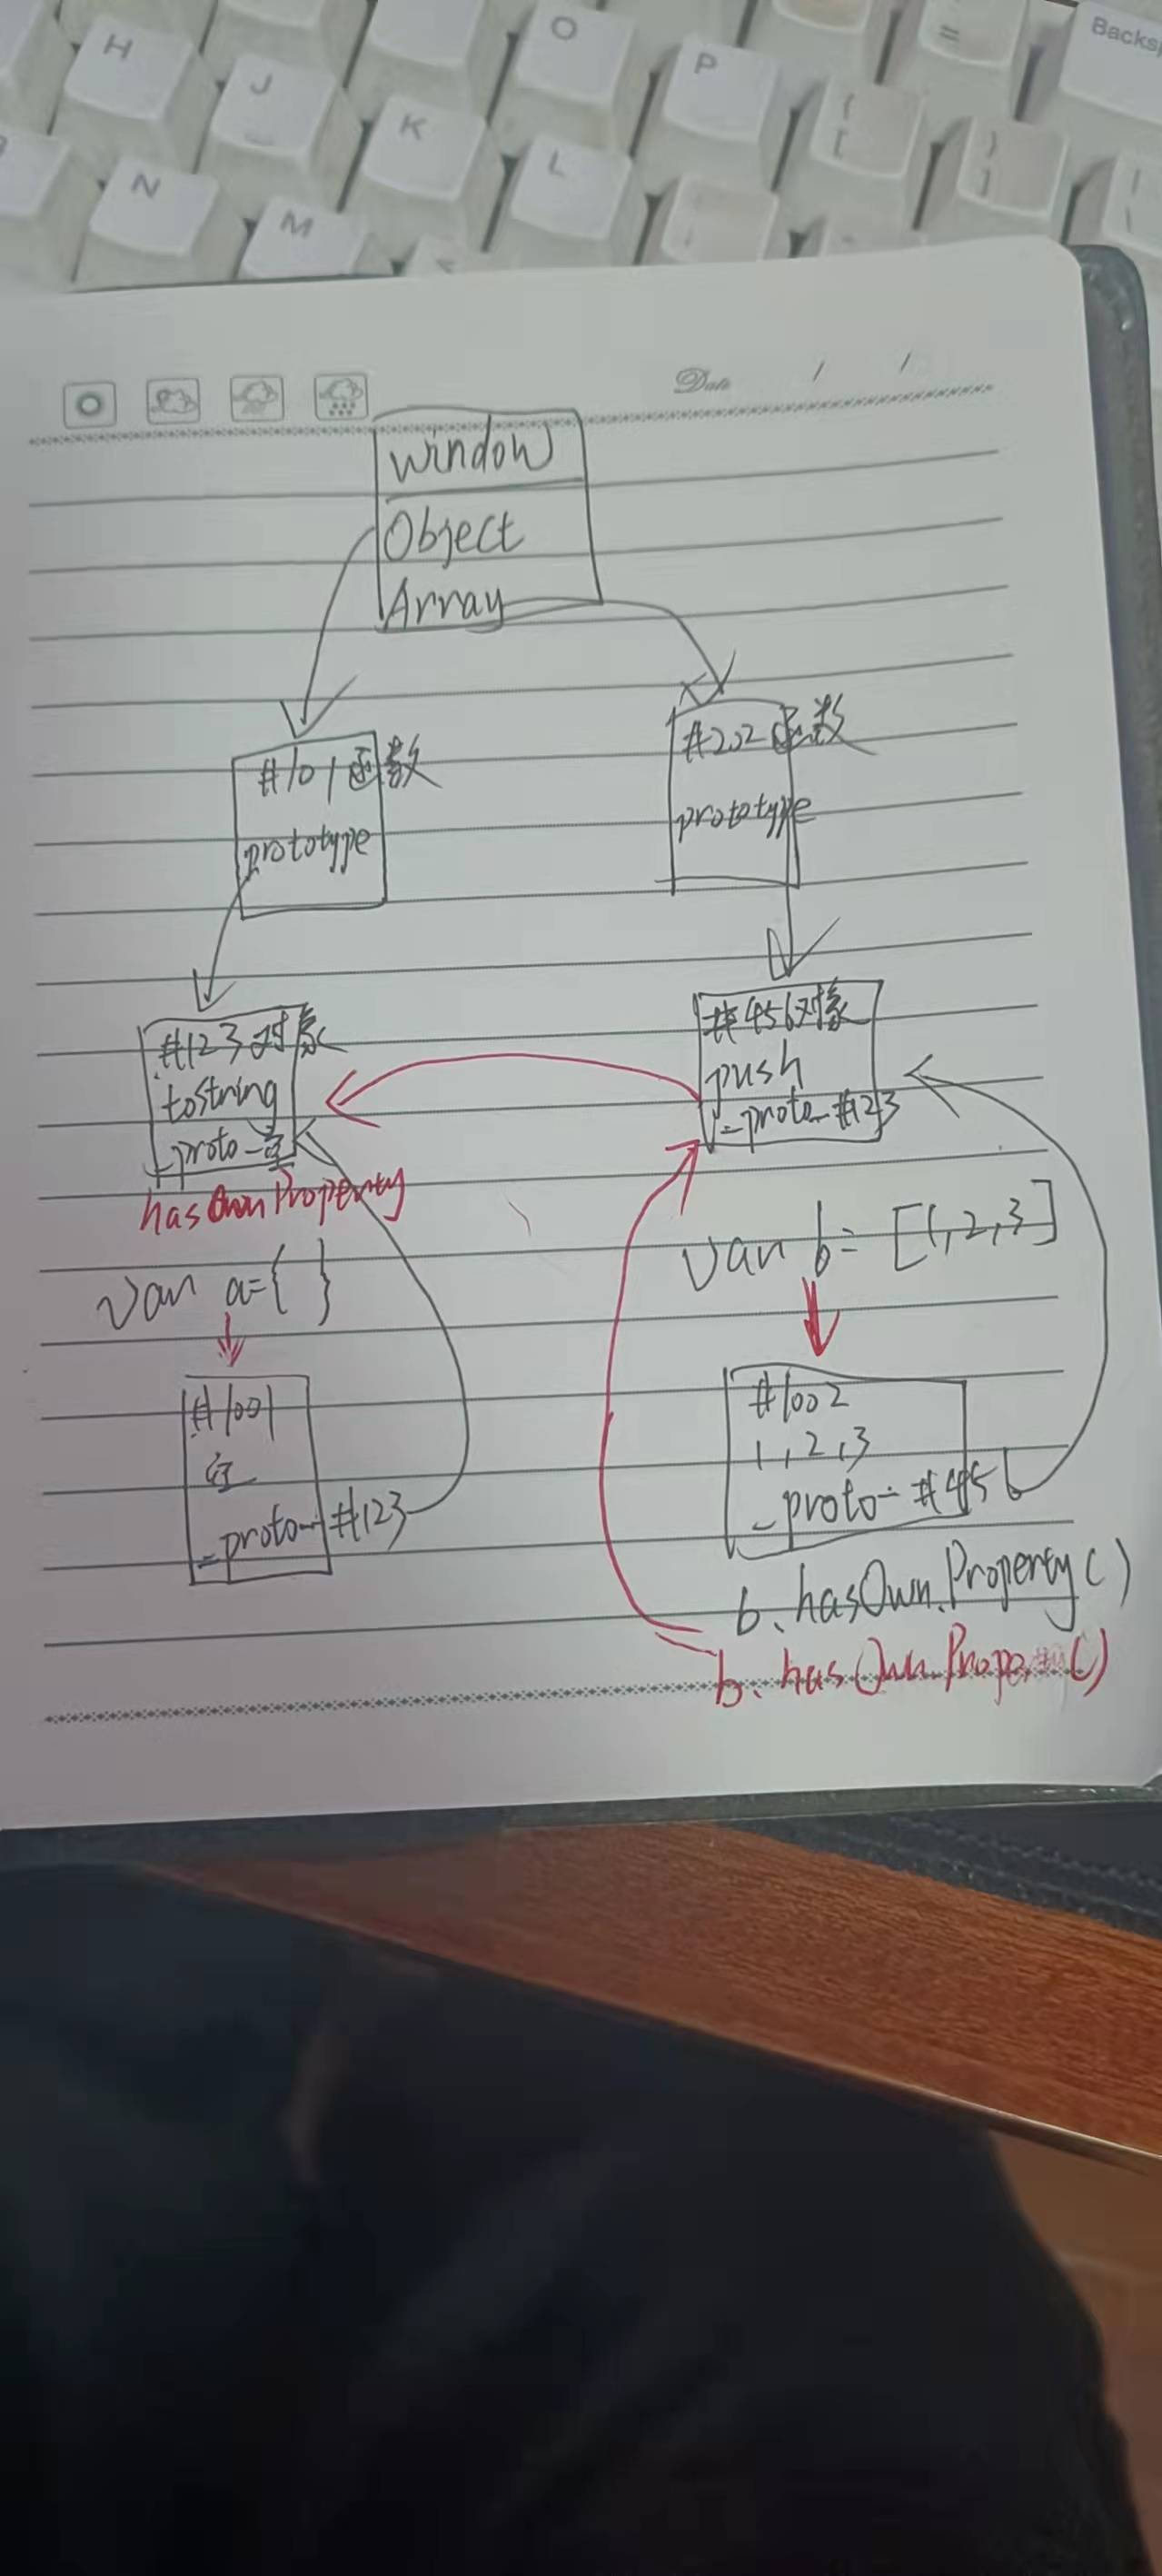 H
J
K
L
O
P
=
{
[
}
]
N
M
Date / /
window
Object
Array
#101函数
prototype
#202函数
prototype
#123对象
toString
_proto_空
hasOwnProperty
#456对象
push
_proto_#123
var a={ }
var b=[1,2,3]
#1001
空
_proto_#123
#1002
1,2,3
_proto_#456
b.hasOwn.Property()
b.hasOwn.Prope ()